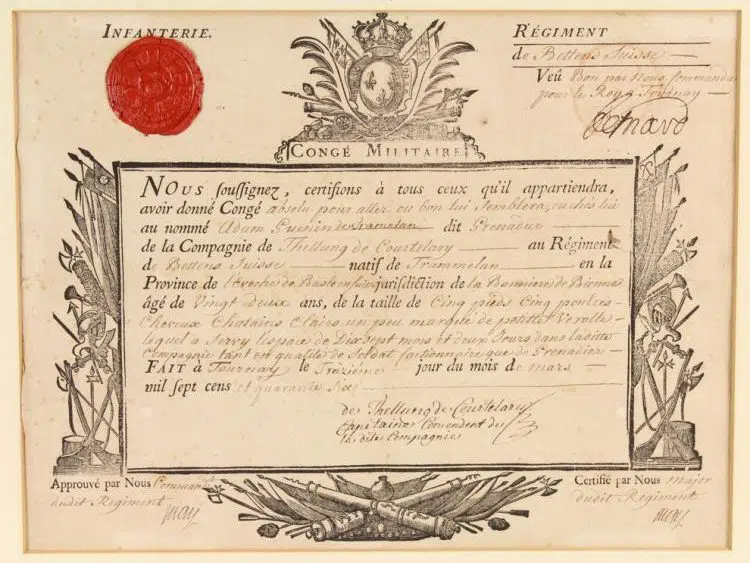 INFANTERIE.
RÉGIMENT
de Bettens Suisse
Veû Bon par Nous Commanda
pour le Roy a Tournay
CONGÉ MILITAIRE
NOUS soussignez, certifions à tous ceux qu'il appartiendra,
avoir donné Congé absolu pour aller ou bon lui Semblera, ou chés lui
au nommé Adam Guenin de Tramelan dit Grenadier
de la Compagnie de Thellung de Courtelary au Régiment
de Bettens Suisse natif de Trammelan en la
Province de Leveché de Basle jurisdiction de la Banniere de Bienne
âgé de Vingt deux ans, de la taille de Cinq pieds Cinq pouces
Cheveux Chatains Clairs, un peu marqué de petitte Verolle
lequel a Servy l'espace de Dix Sept mois et deux Jours dans laditte
Compagnie tant en qualité de Soldat factionnaire que de Grenadier
FAIT à Tournay le Treizième jour du mois de mars
mil sept cens et quarante Six
de Thellung de Courtelary
Capitaine Comendent de
la dite Compagnie
Approuvé par Nous Command
dudit Regiment
Certifié par Nous major
dudit Regiment